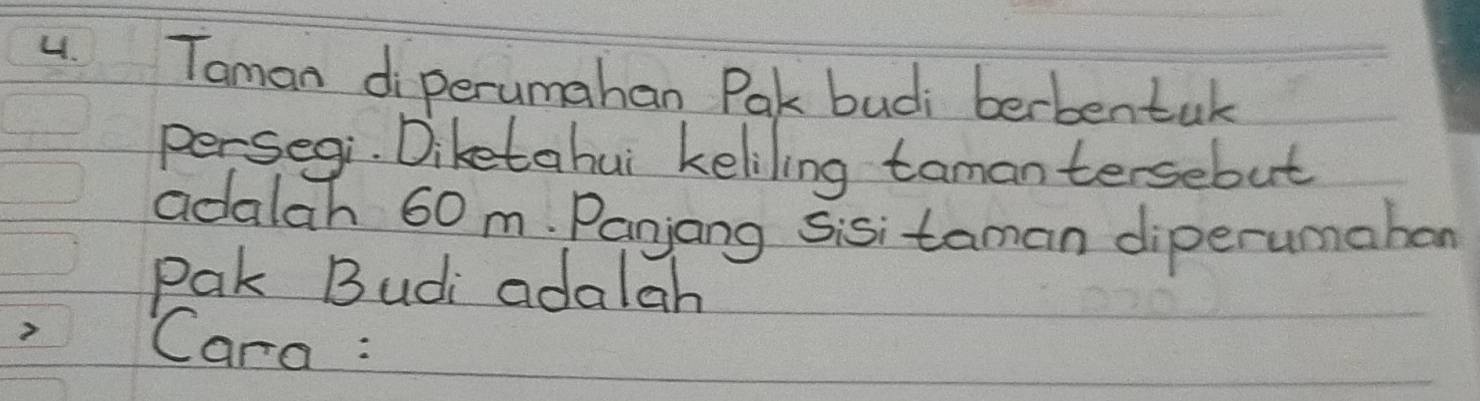 4. Taman diperumahan Pak budi berbentuk
persegi. Diketahui keliling taman tersebut
adalah 60 m. Panjang sisi taman diperumahan
Pak Budi adalah
> Cara :